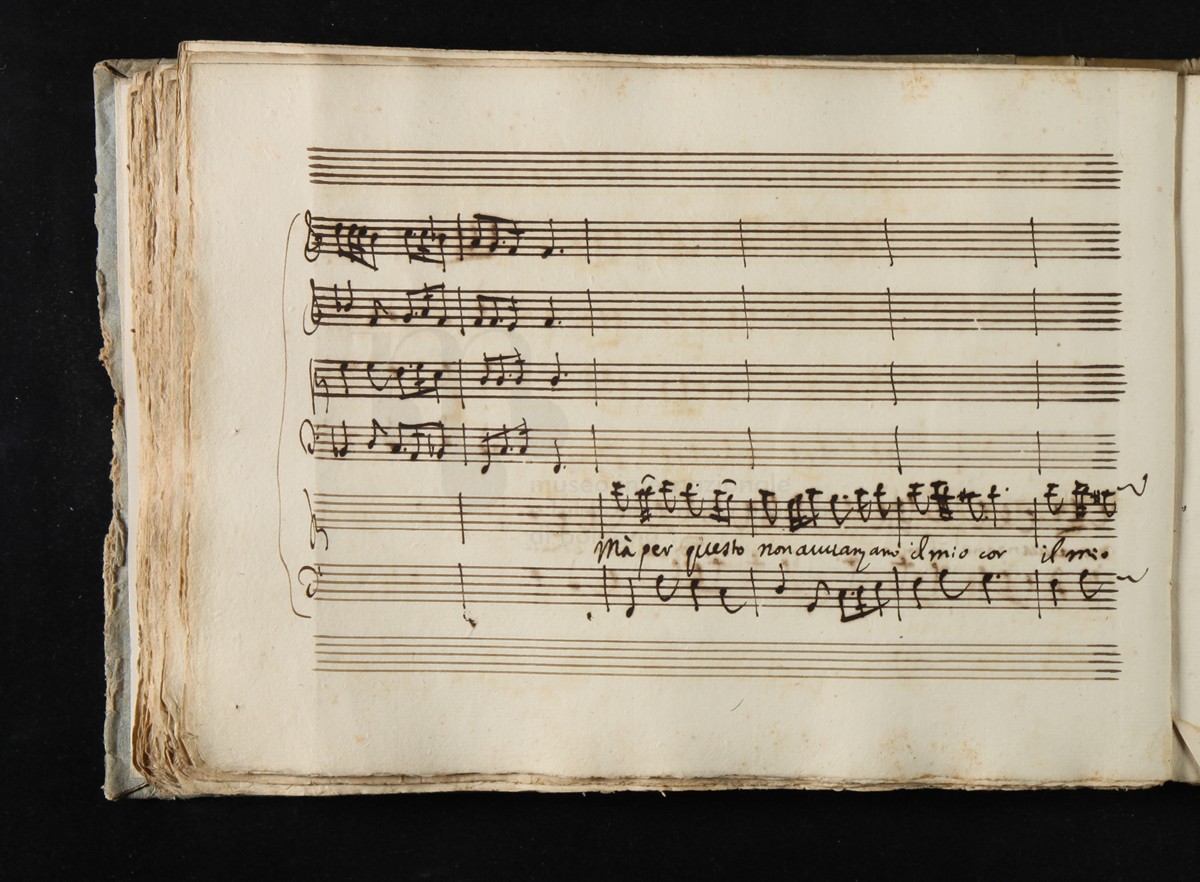 museo internazionale
Mà per questo non auuanzano il mio cor il mio